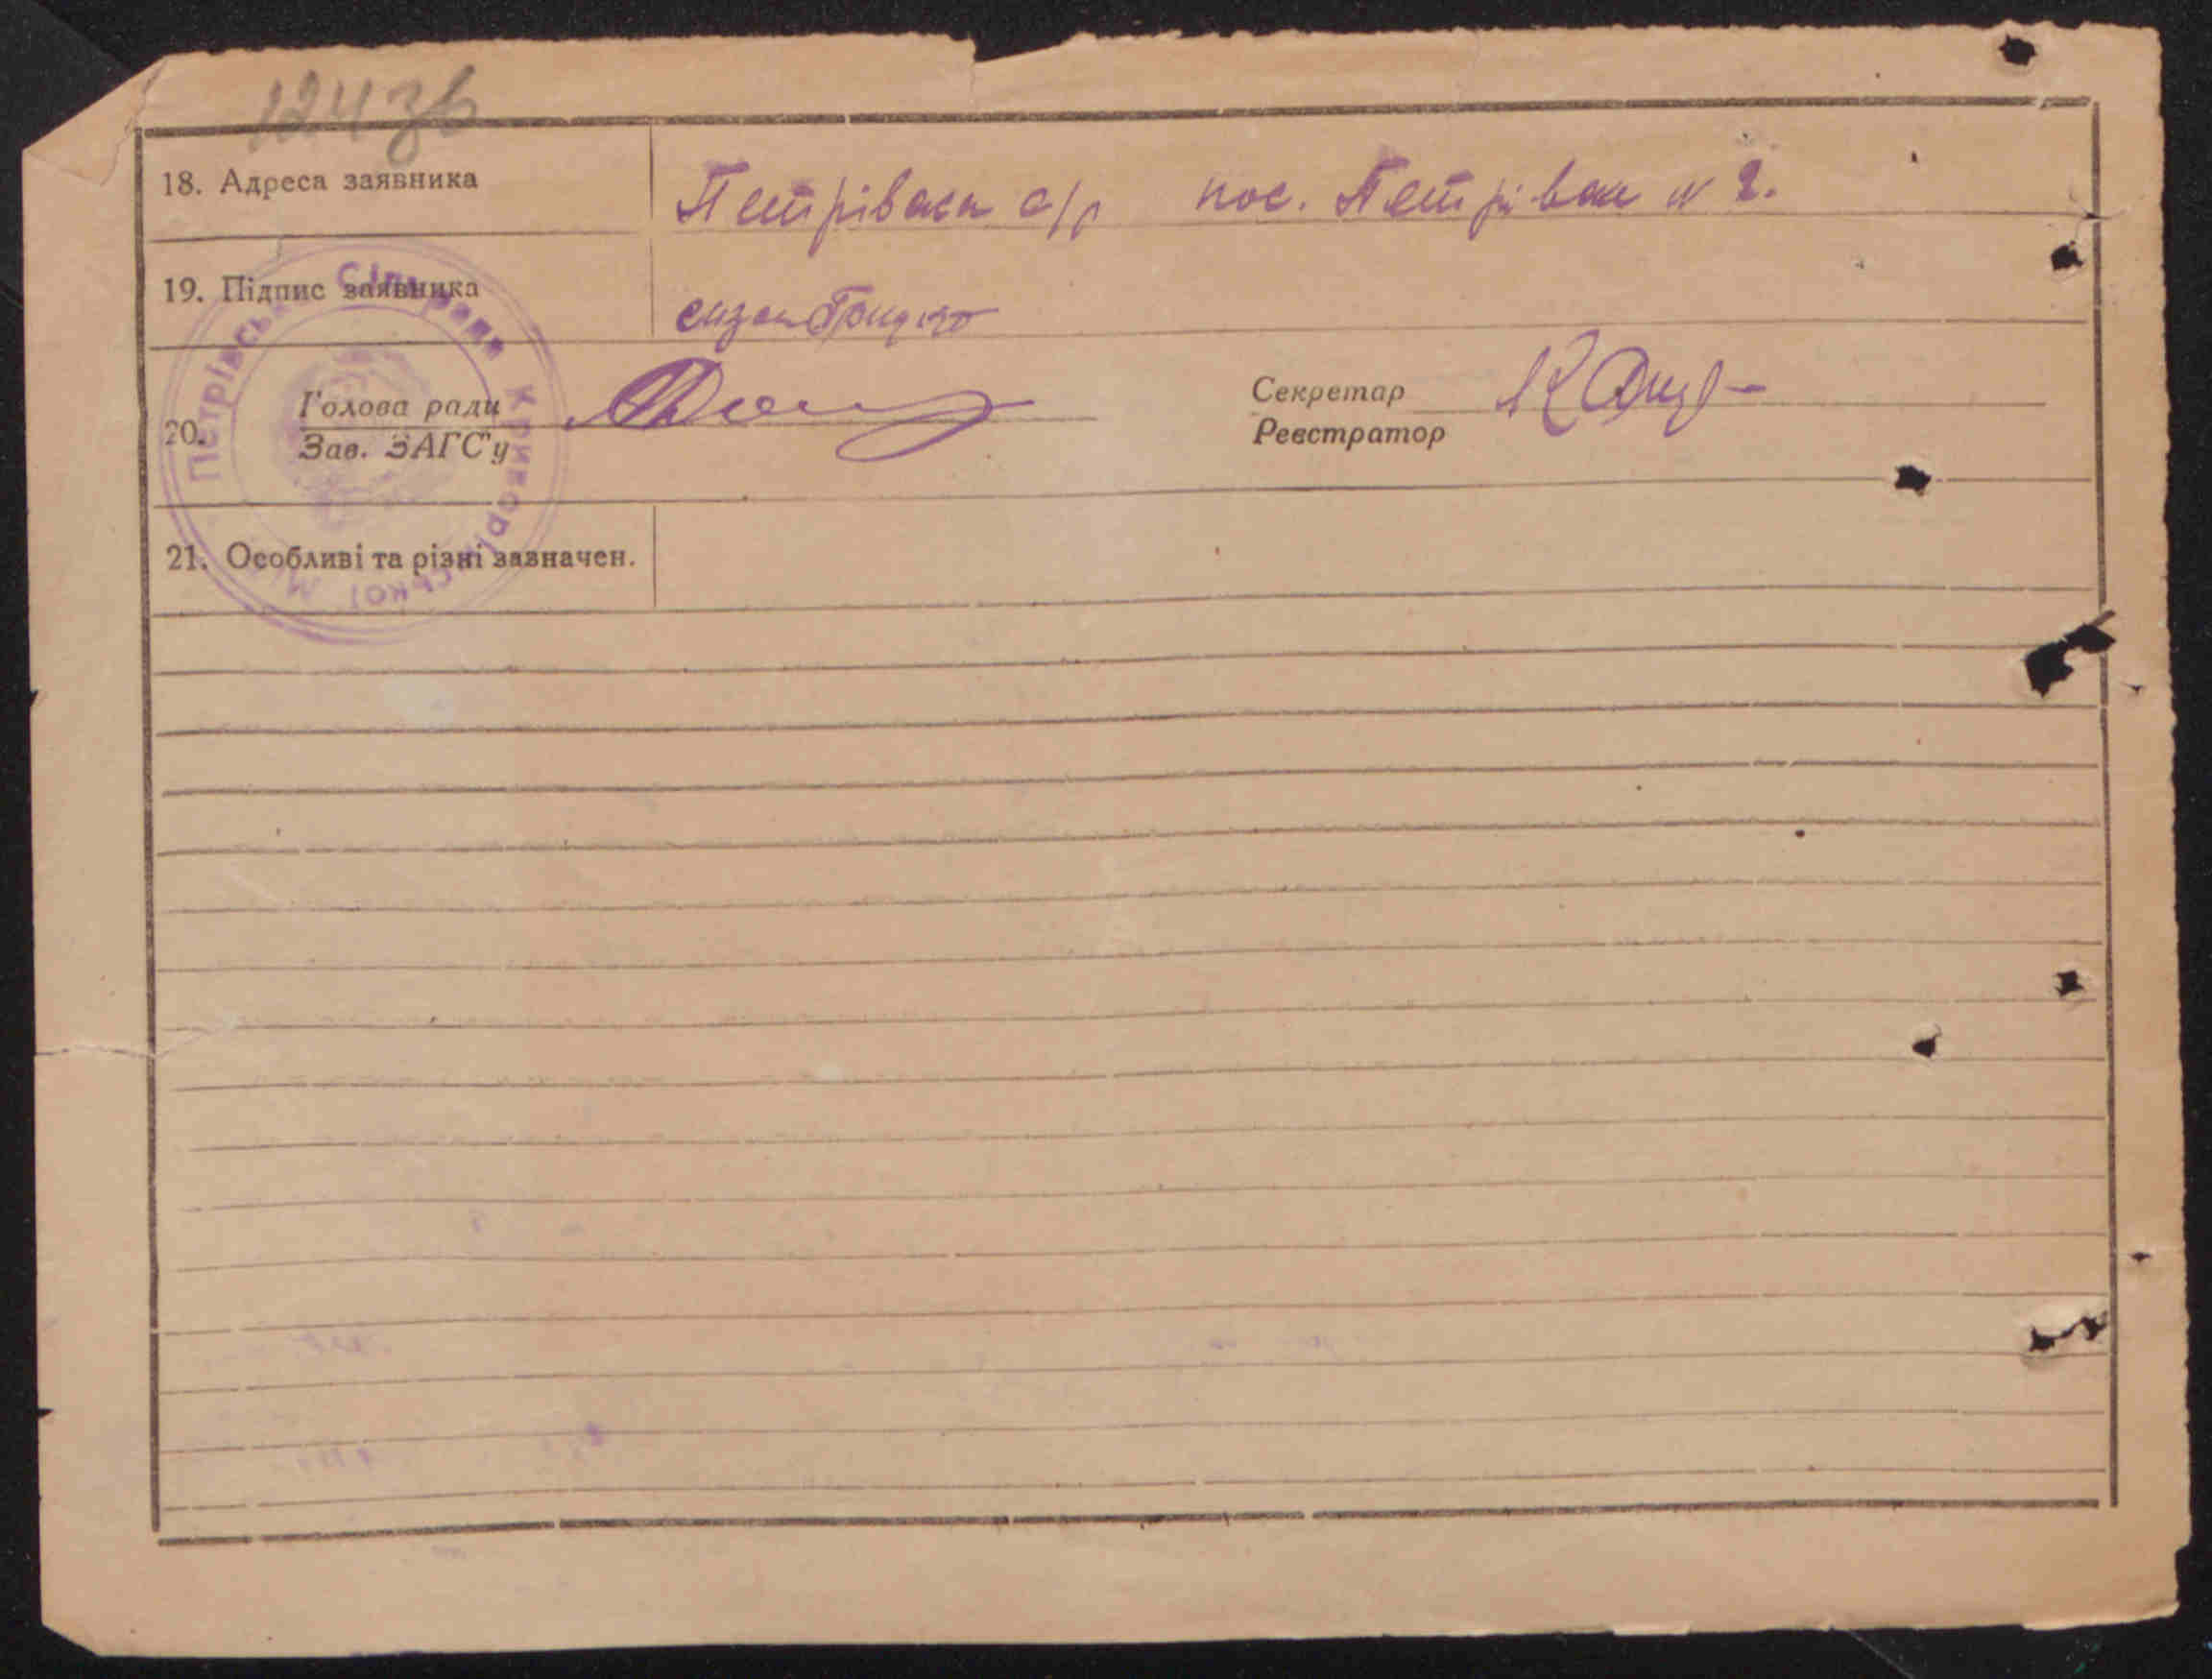 124 зв
18. Адреса заявника
Петрівська с/р пос. Петрівка № 2.
19. Підпис заявника
20. Голова ради
Зав. ЗАГС'у
Секретар
Реєстратор
21. Особливі та різні зазначен.
Петрівська Сільрада Криворізької